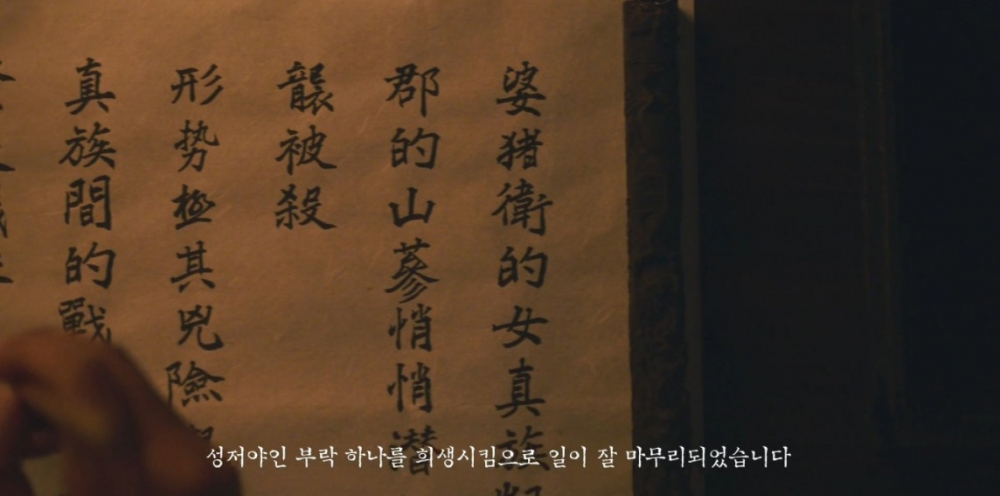 婆猪衛的女真族
郡的山蔘悄悄潜
襲被殺
形势極其兇險
真族間的戰
성저야인 부락 하나를 희생시킴으로 일이 잘 마무리되었습니다